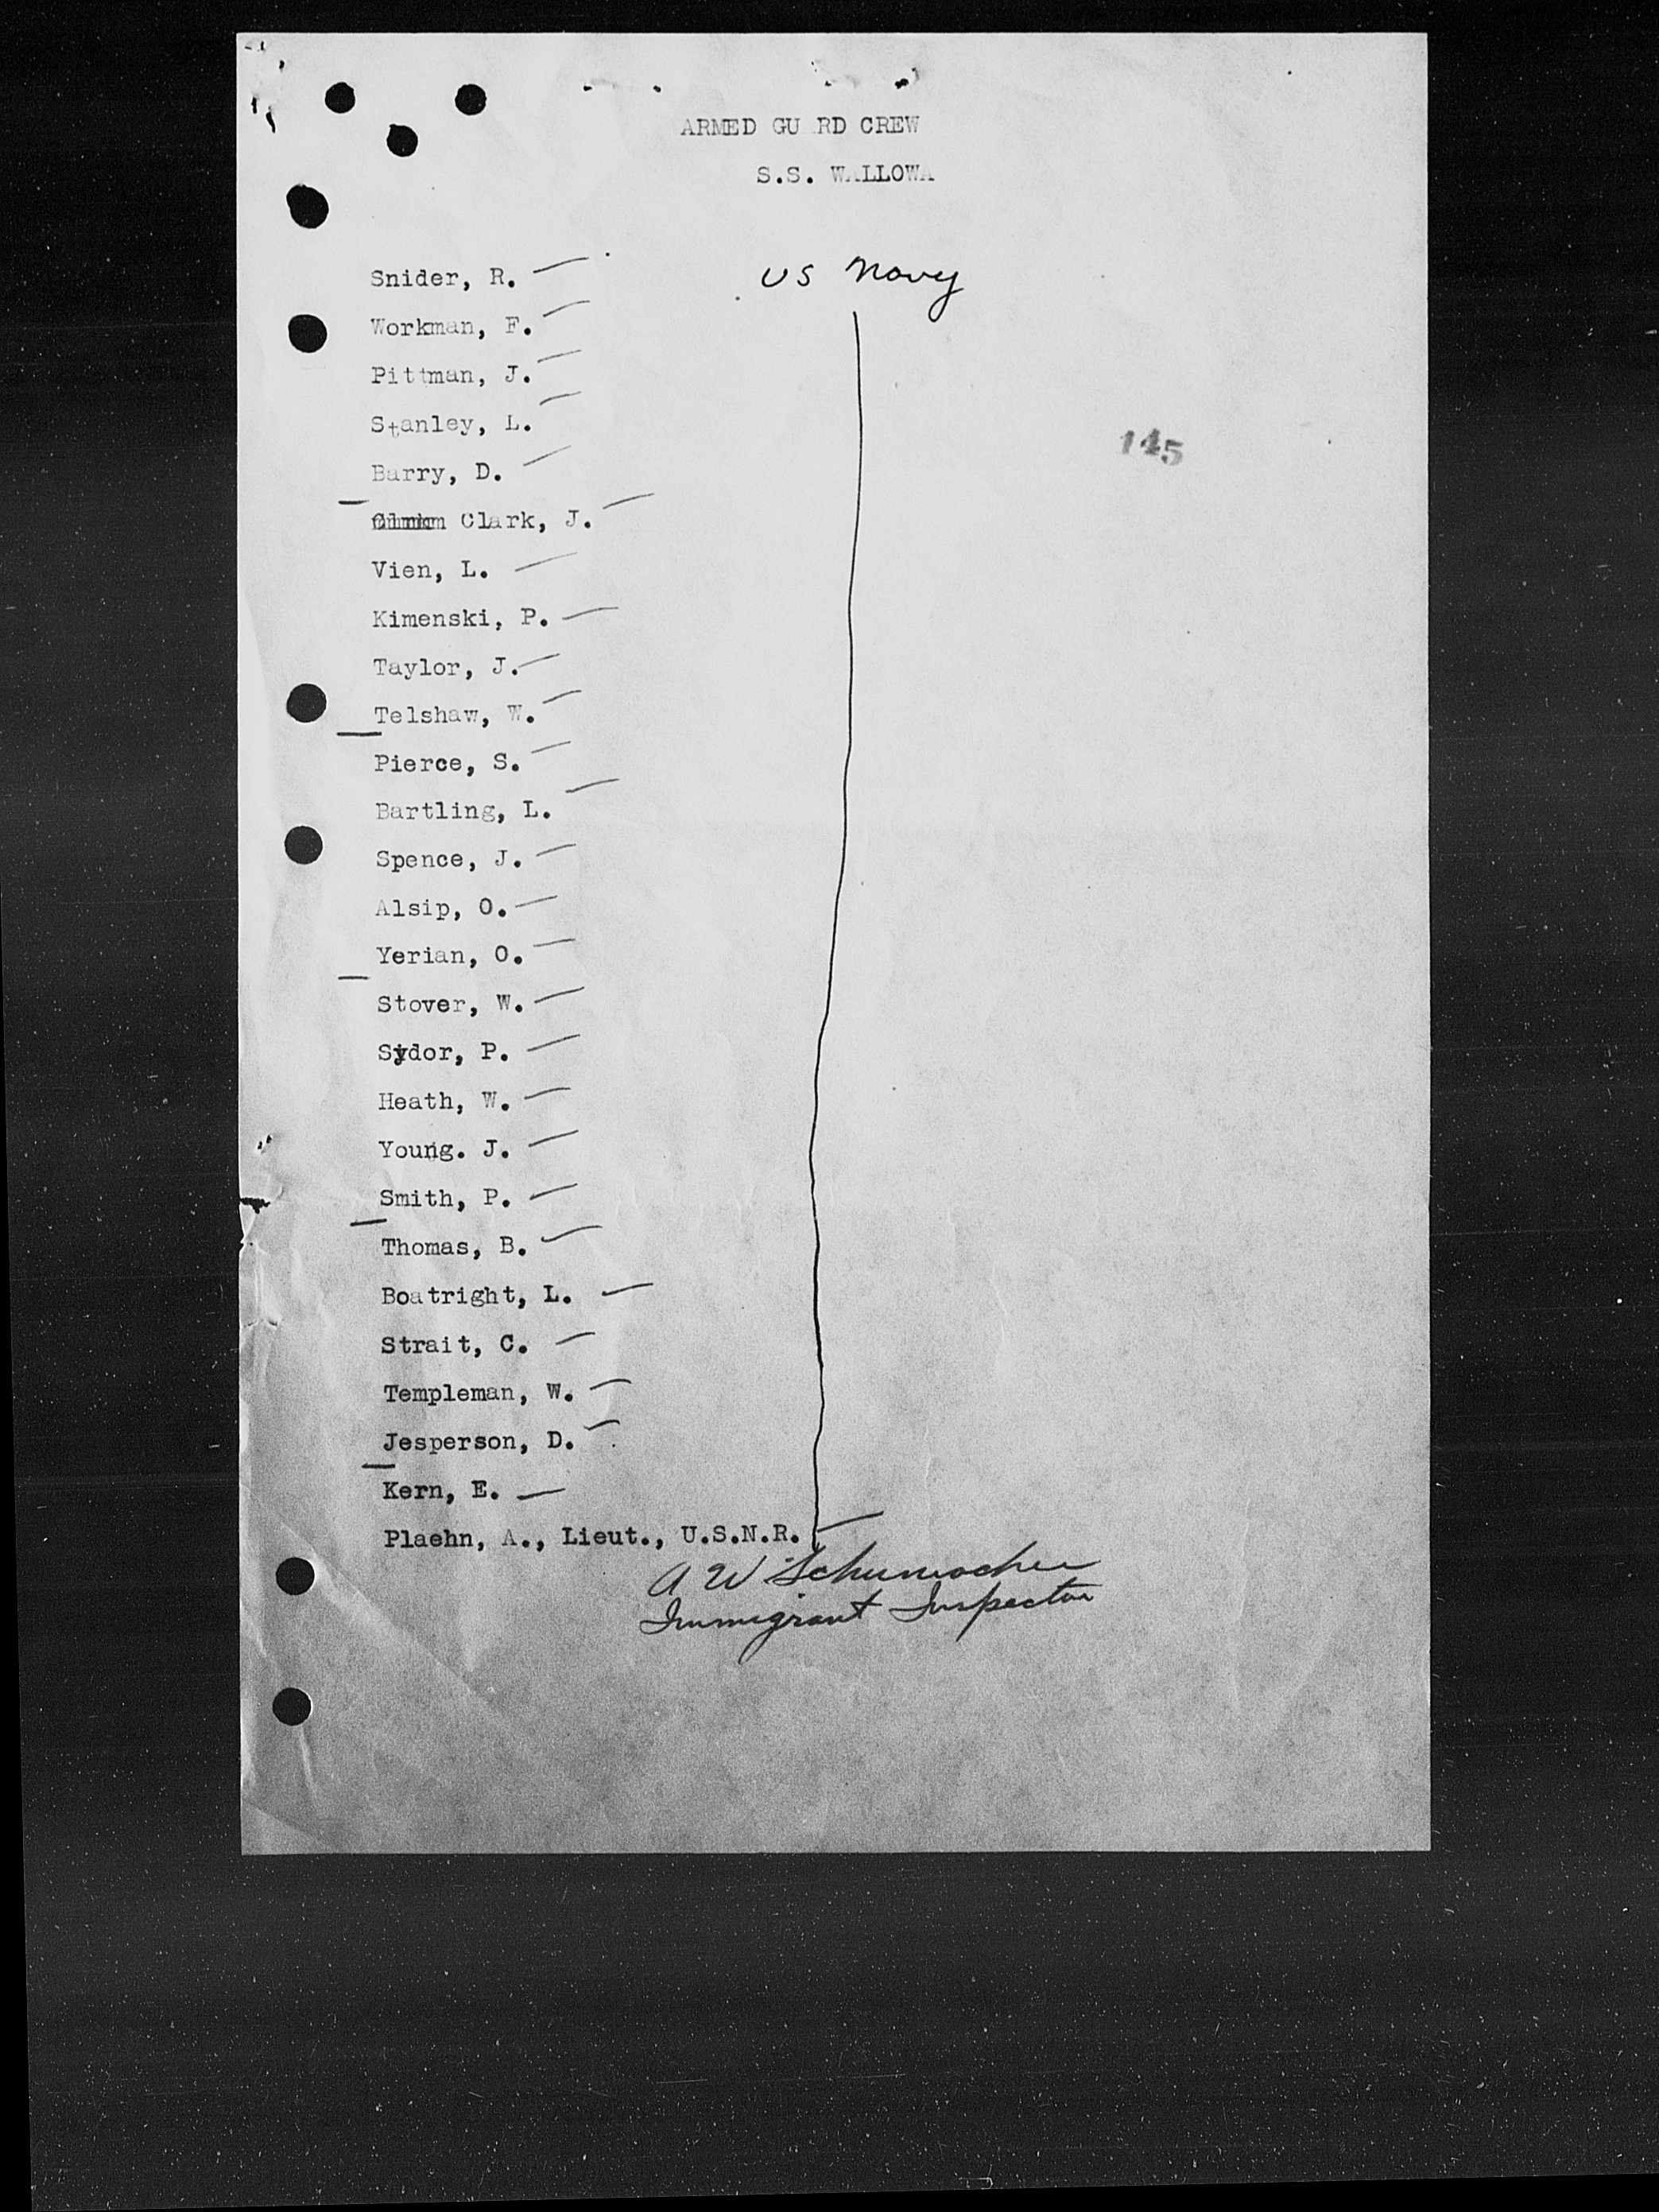 ARMED GU RD CREW
S.S. WALLOWA
Snider, R.
US Navy
Workman, F.
Pittman, J.
Stanley, L.
145
Barry, D.
Clark, J.
Vien, L.
Kimenski, P.
Taylor, J.
Telshaw, W.
Pierce, S.
Bartling, L.
Spence, J.
Alsip, O.
Yerian, O.
Stover, W.
Sydor, P.
Heath, W.
Young. J.
Smith, P.
Thomas, B.
Boatright, L.
Strait, C.
Templeman, W.
Jesperson, D.
Kern, E.
Plaehn, A., Lieut., U.S.N.R.
A W Schumacher
Immigrant Inspector